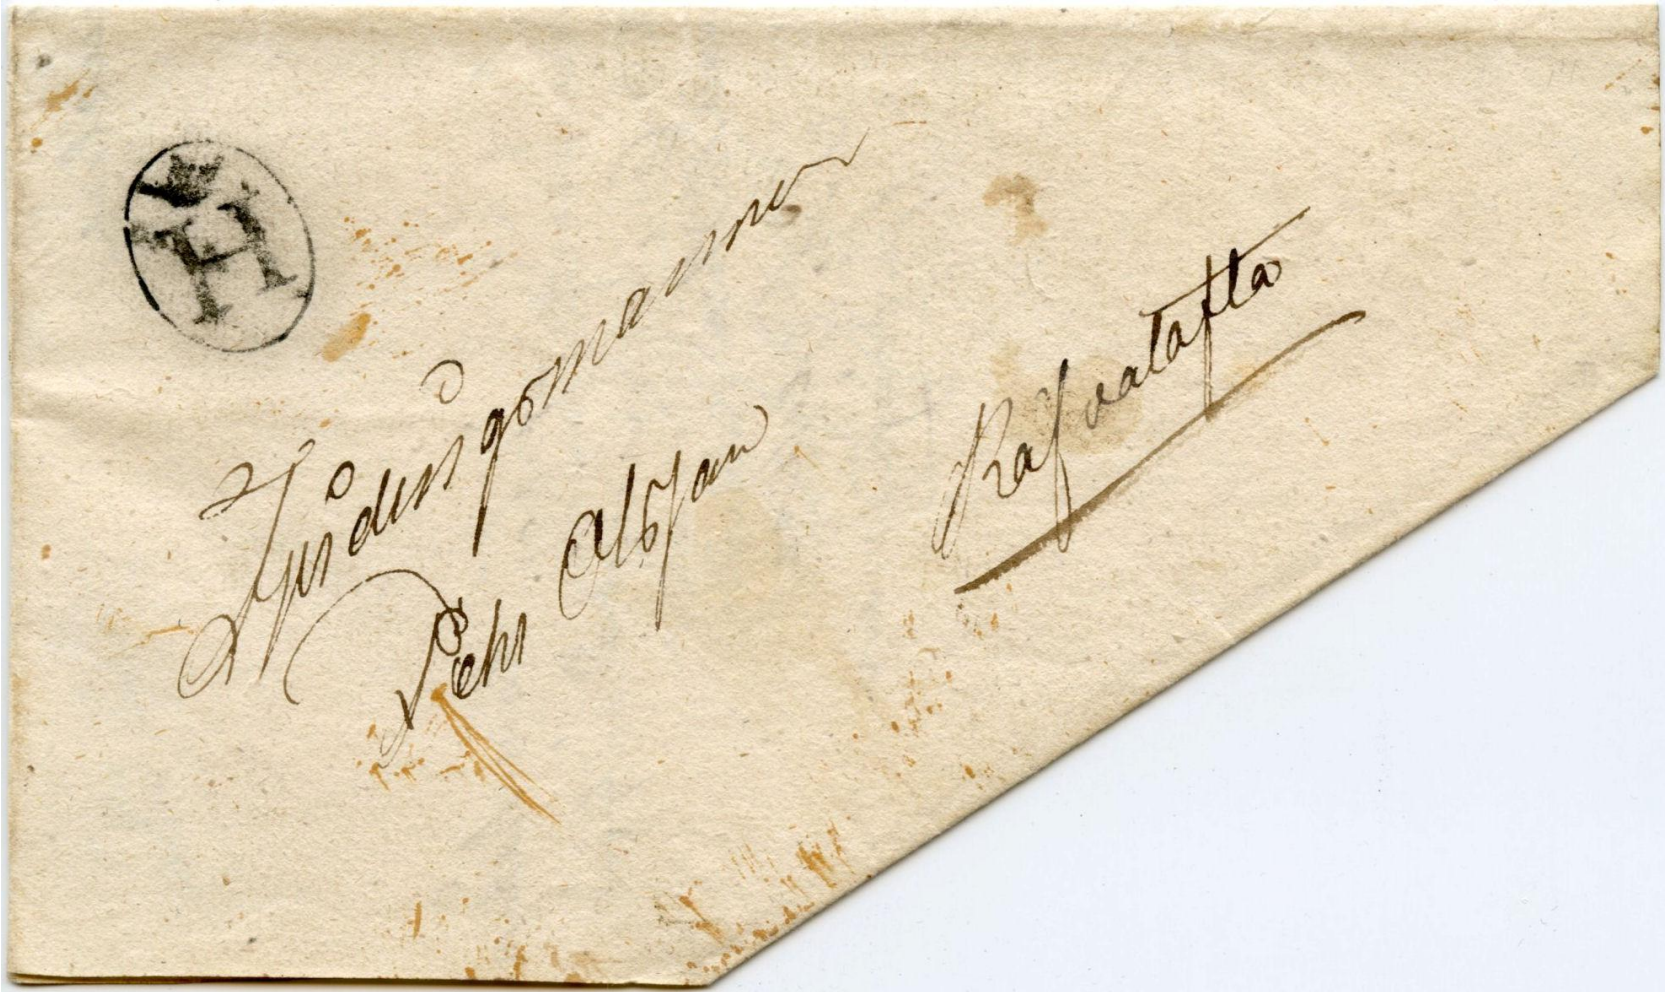 H
Fjerdingsmannen
Pehr Olsson
Rafvatafta